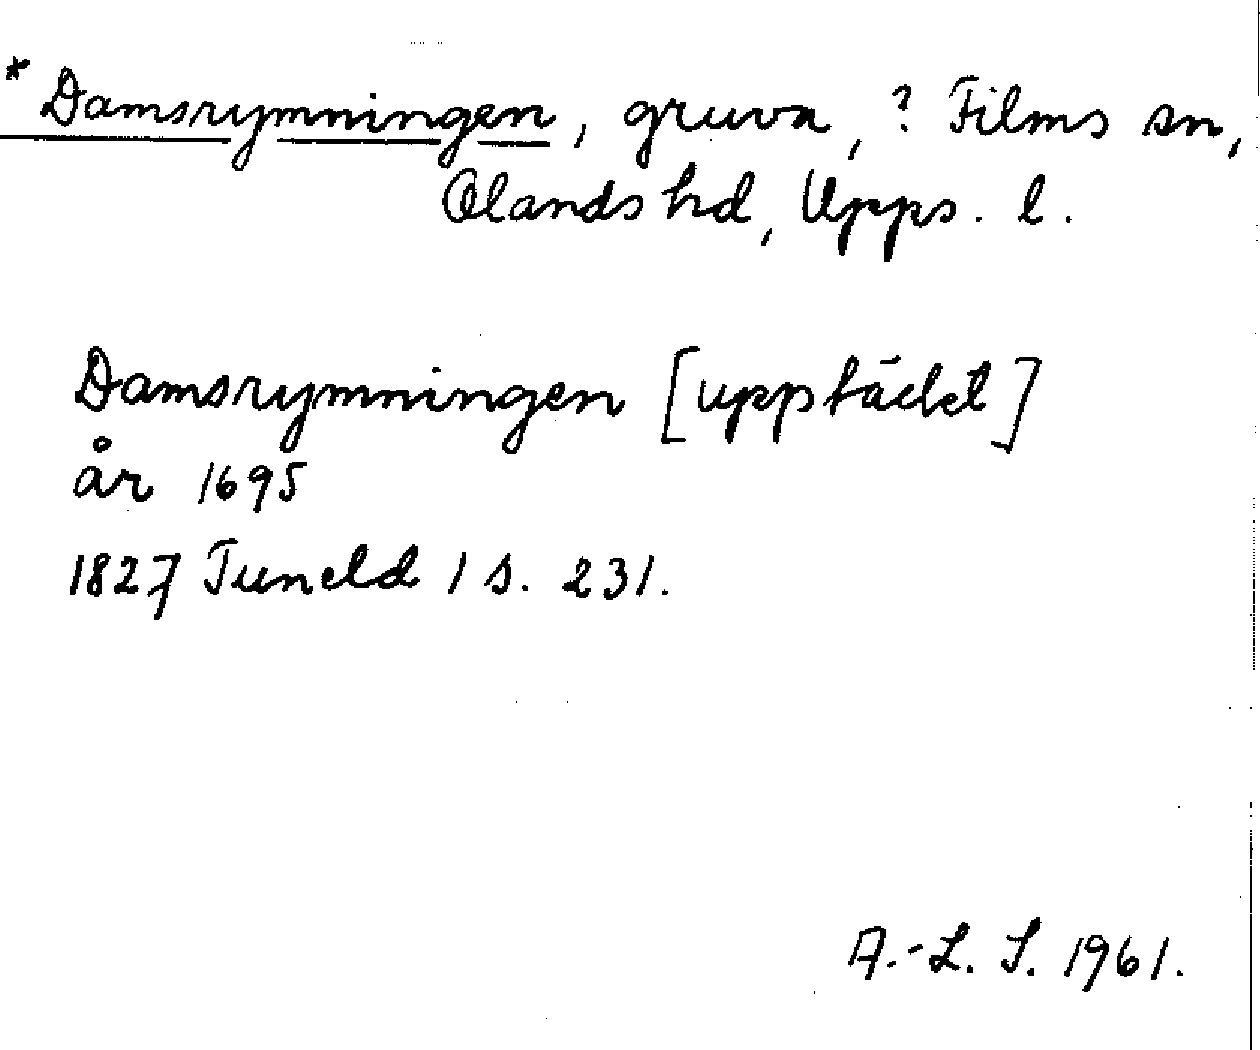 * Damsrymningen, gruva, ? Films sn,
Olands hd, Upps. l.
Damsrymningen [upptäckt]
år 1695
1827 Tuneld 1 s. 231.
A.-L. S. 1961.